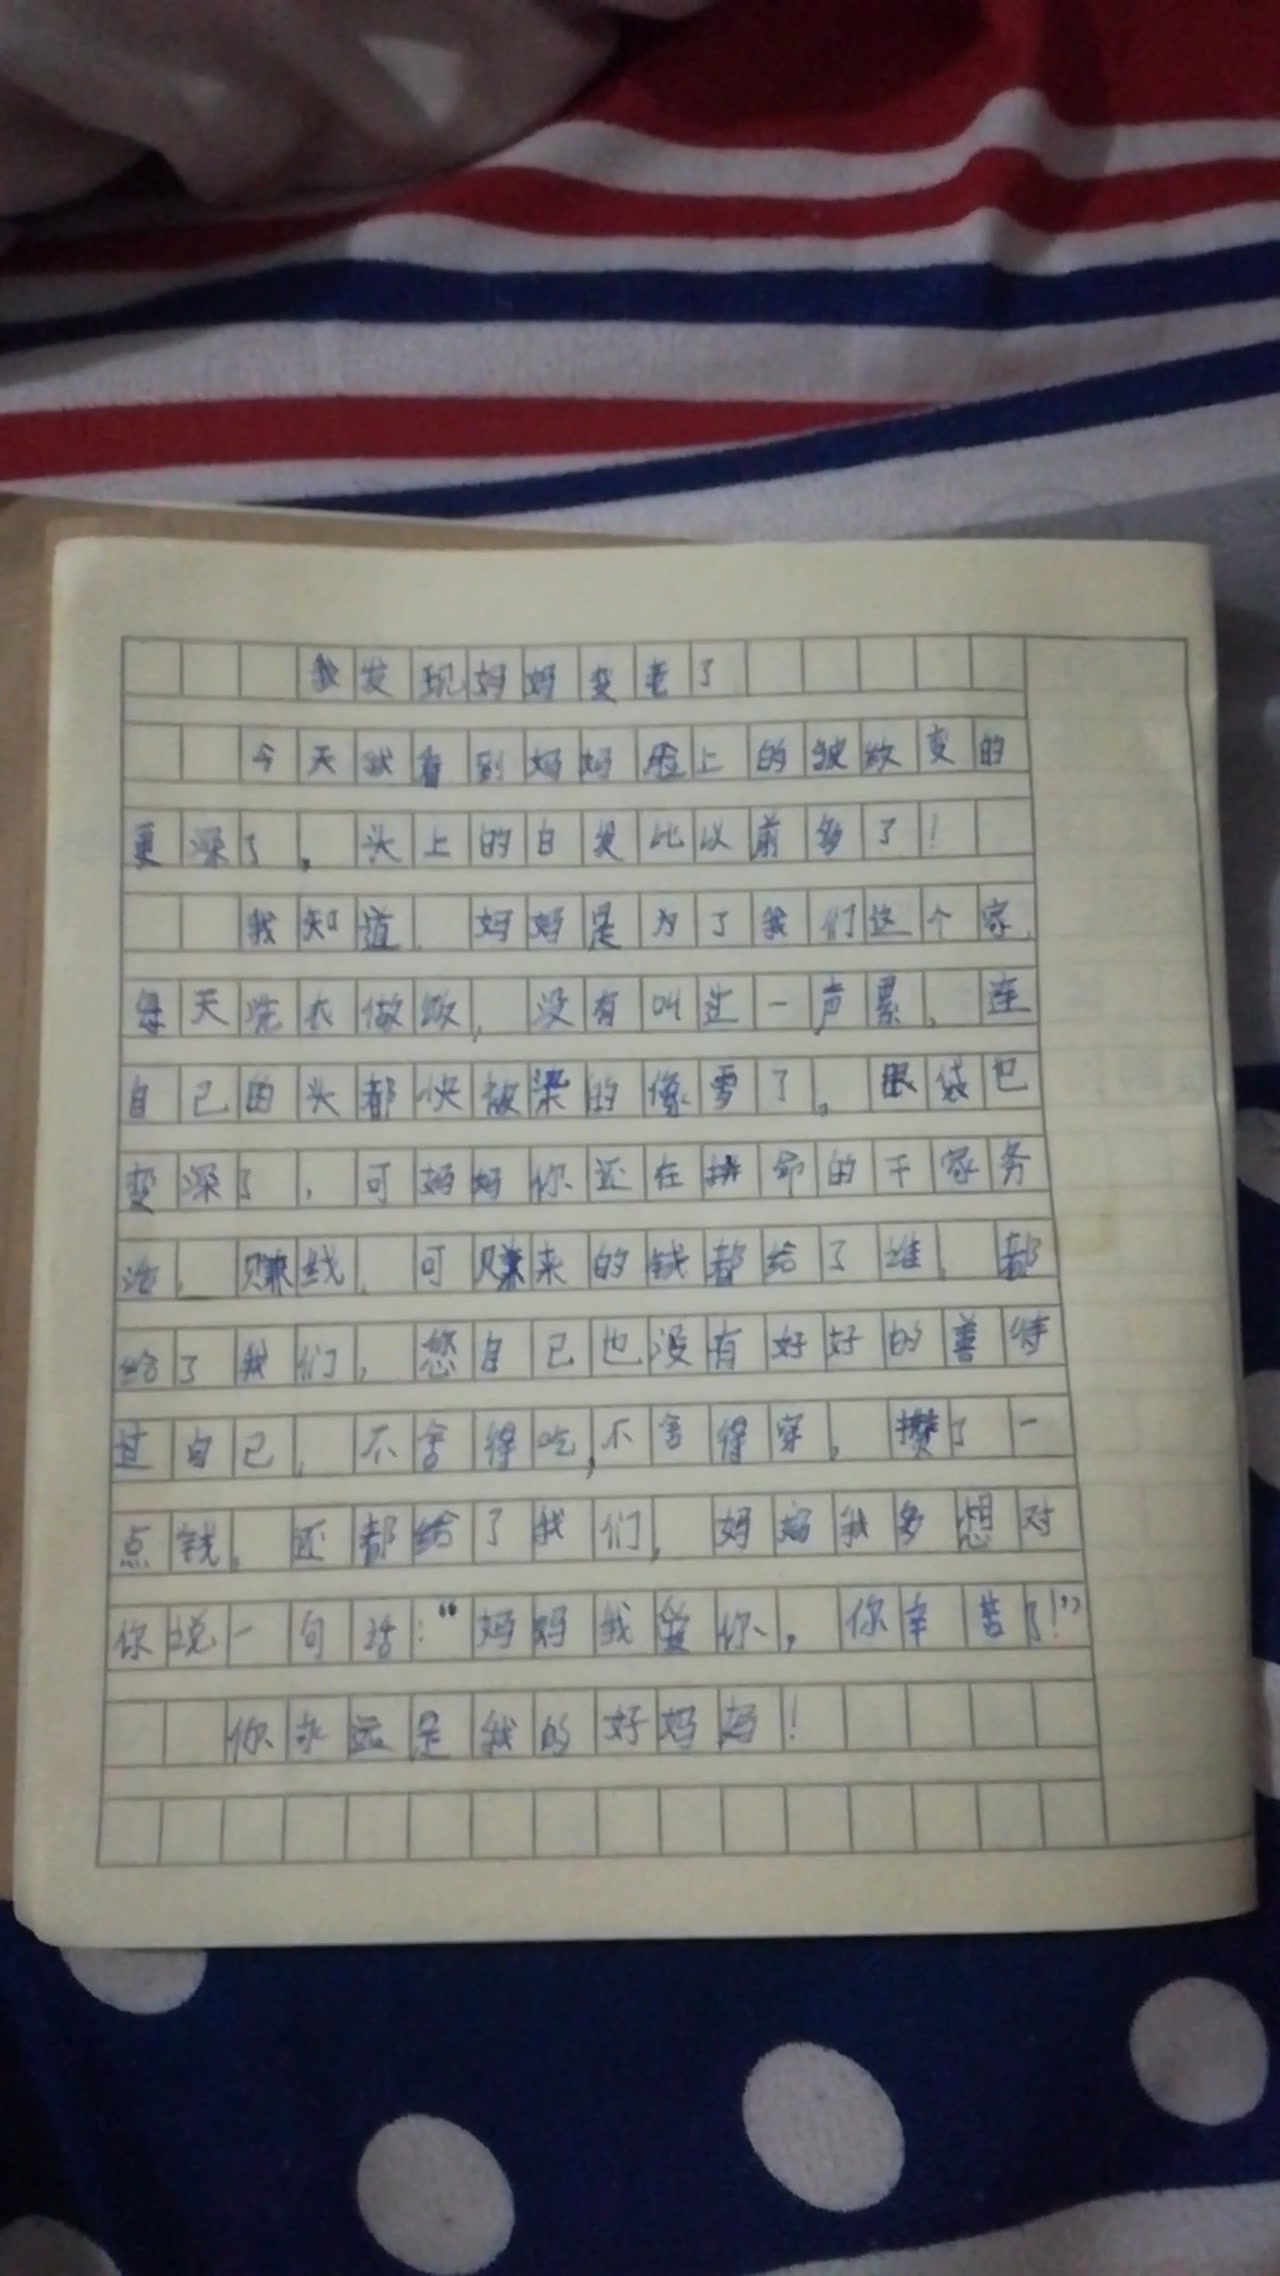 我发现妈妈变老了
今天我看到妈妈脸上的皱纹变的
更深了，头上的白发比以前多了！
我知道，妈妈是为了我们这个家，
每天洗衣做饭，没有叫过一声累，连
自己的头都快被染的像雪了，眼袋也
变深了，可妈妈你还在拼命的干家务
活，赚钱，可赚来的钱都给了谁，都
给了我们，您自己也没有好好的善待
过自己，不舍得吃，不舍得穿，攒了一
点钱，还都给了我们，妈妈我多想对
你说一句话：“妈妈我爱你，你辛苦了！”
你永远是我的好妈妈！